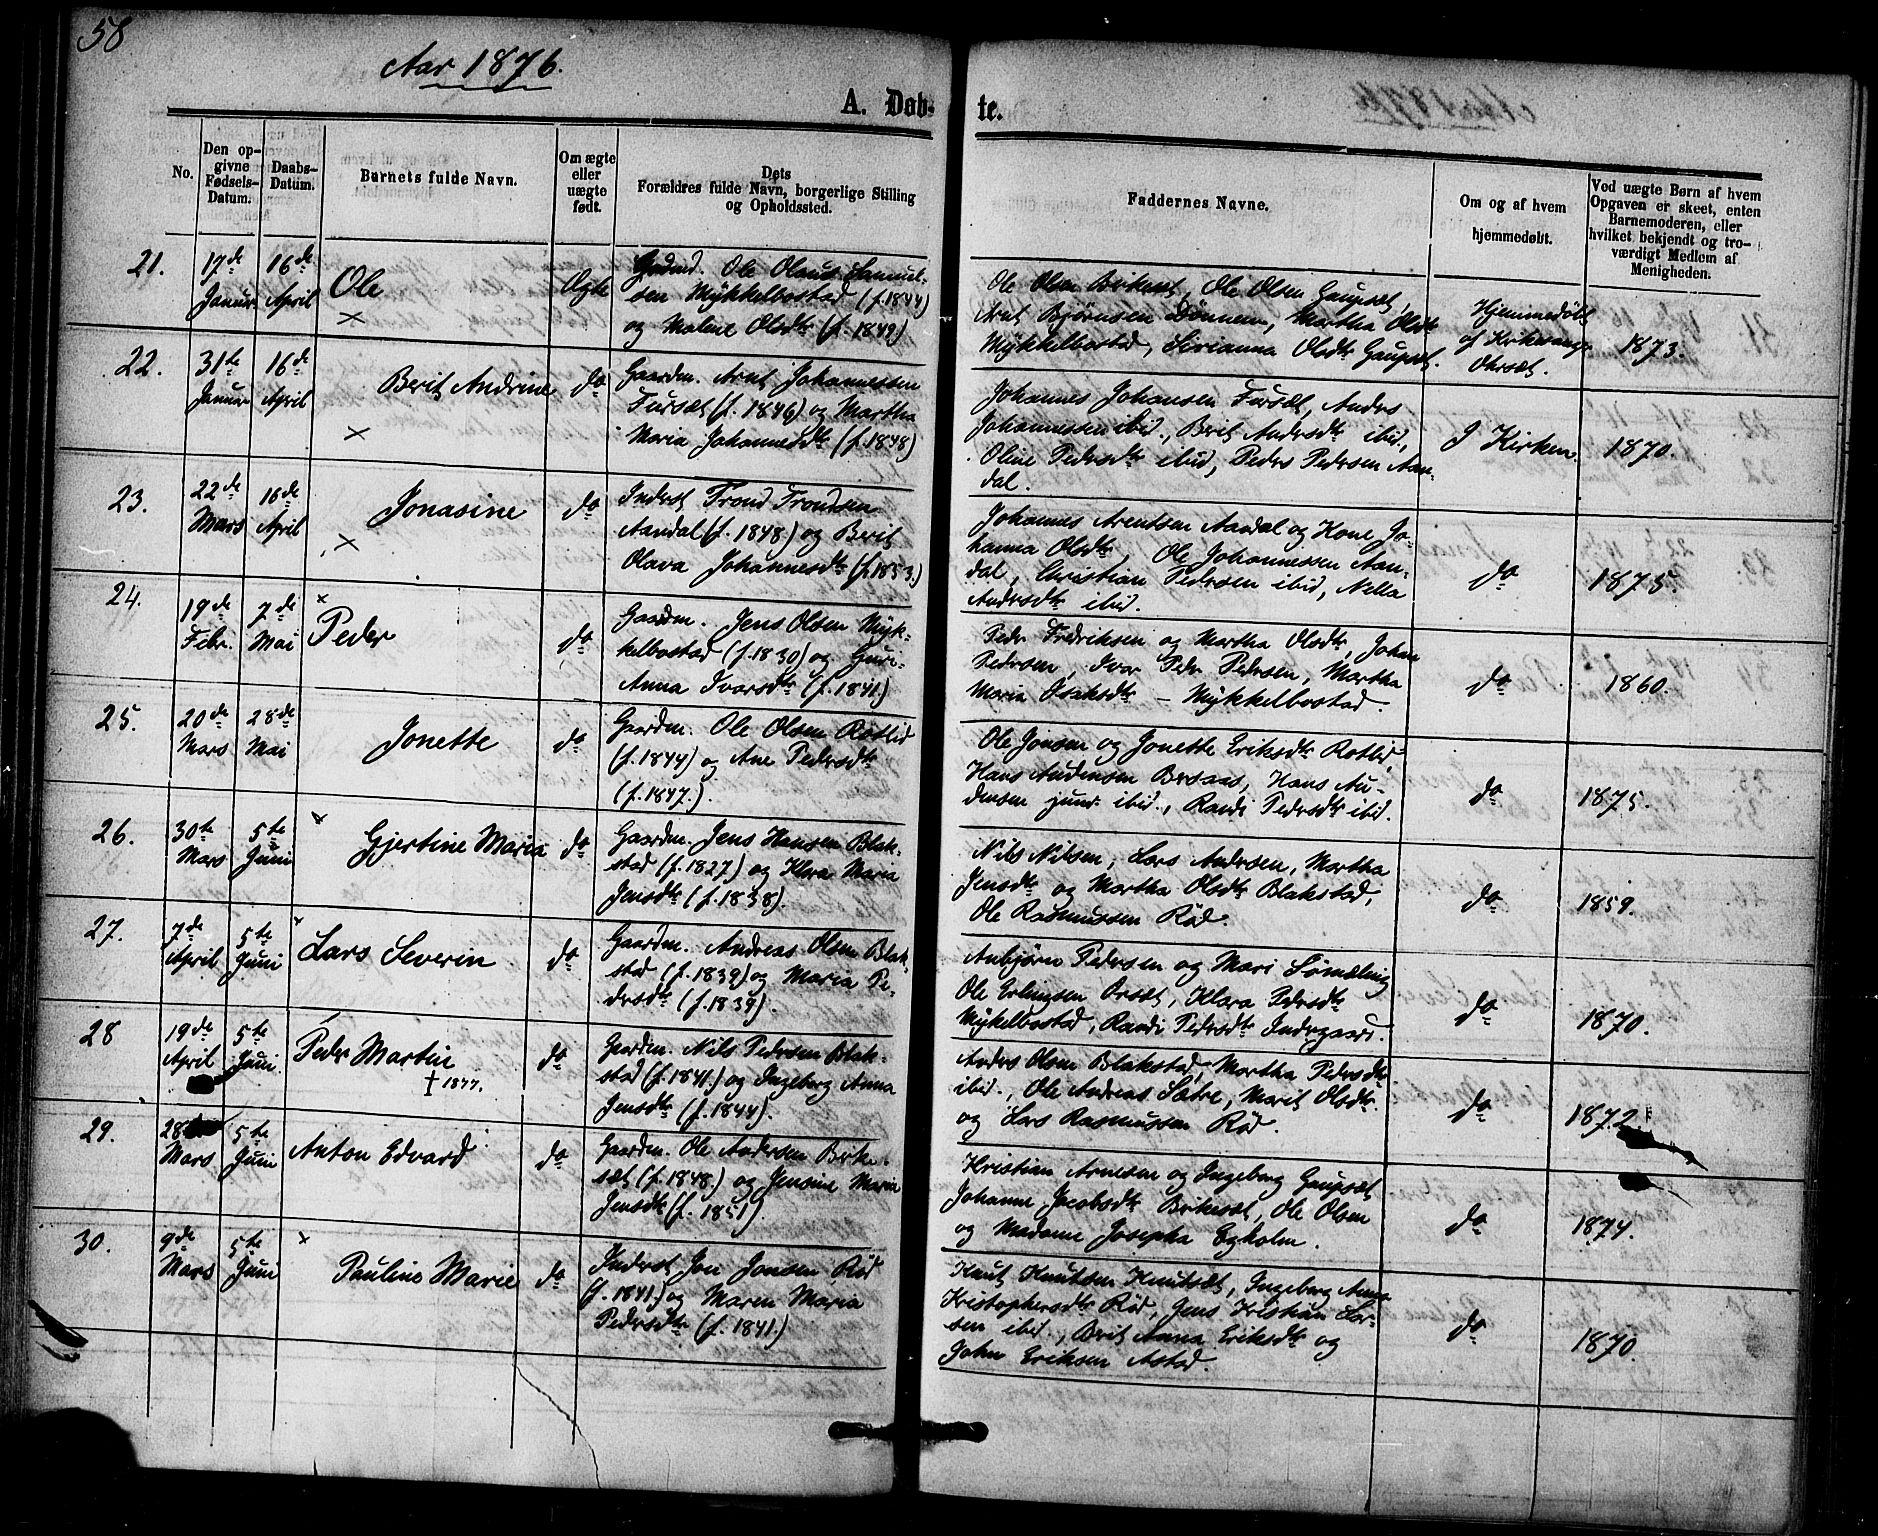 58
Aar 1876.
A. Døb-
te.
No.
Den op-
givne
Fødsels-
Datum.
Daabs-
Datum.
Barnets fulde Navn.
Om ægte
eller
uægte
født.
Dets
Forældres fulde Navn, borgerlige Stilling
og Opholdssted.
Faddernes Navne.
Om og af hvem
hjemmedøbt.
Ved uægte Børn af hvem
Opgaven er skeet, enten
Barnemoderen, eller
hvilket bekjendt og tro-
værdigt Medlem af
Menigheden.
21.
17de
Januar
16de
April
Ole
×
Ægte
Ole Olaus Samuel-
sen Mykkelbostad (f. 1844)
og Malene Olsdtr (f. 1849.)
Ole Olsen Birkeset, Ole Olsen Gaupset,
Arnt Bjørnsen Dønnem, Martha Olsdtr
Mykkelbostad, Sirianna Olsdtr Gaupset.
Hjemmedøbt
af Kirkesanger
1873.
22.
31te
Januar
16de
April
Berit Andrine
×
do
Gaardm. Arnt Johannessen
Fursæt (f. 1846) og Martha
Maria Johannesdtr (f. 1848)
Johannes Johansen Fursæt, Anders
Johannessen ibid., Berit Andersdtr ibid,
Oline Pedersdtr ibid, Peder Pedersen Aan-
dal.
I Kirken.
1870.
23.
22de
Mars
16de
April
Jonasine
×
do
Inderst Trond Trondsen
Aandal (f. 1848.) og Berit
Olava Johannesdtr (f. 1853.)
Johannes Arentsen Aandal og Kone Jo-
hanna Olsdtr, Ole Johannessen Aan-
dal, Christian Pedersen ibid, Nella
Andersdtr ibid.
do
1875.
24.
19de
Febr.
7de
Mai
×
Peder
do
Gaardm. Jens Olsen Myk-
kelbostad (f. 1830) og Guri-
Anna Ivarsdtr (f. 1841.)
Peder Fredriksen og Martha Olsdtr, Johan
Pedersen, Ivar Peder Pedersen, Martha
Maria Isaksdtr – Mykkelbostad.
do
1860.
25.
20de
Mars
28de
Mai
Jonette
do
Gaardm. Ole Olsen Rotlid
(f. 1844) og Ane Pedersdtr
(f. 1847.).
Ole Jonsen og Jonette Eriksdtr Rotlid,
Hans Audensen Bersaas, Hans Au-
densen jun. ibid., Randi Pedersdtr ibid.
do
1875.
26.
30te
Mars
5te
Juni
×
Gjertine Maria
do
Gaardm. Jens Hansen Blak-
stad (f. 1827) og Klara Maria
Jensdtr (f. 1838).
Nils Nilsen, Lars Andersen, Martha
Jensdtr og Martha Olsdtr Blakstad,
Ole Rasmussen Rød.
do
1859.
27.
7de
April
5te
Juni
×
Lars Severin
do
Gaardm. Andreas Olsen Blak-
stad (f. 1839) og Maria Pe-
dersdtr (f. 1839).
Anbjørn Pedersen og Mari
Ole Erlingsen Orset, Klara Pedersdtr
Mykelbostad, Randi Pedersdtr Indregaard.
do
1870.
28
19de
April
5te
Juni
Peder Martin
† 1877.
do
Gaardm. Nils Pedersen Blak-
stad (f. 1841.) og Ingeborg Anna
Jensdtr (f. 1844).
Anders Olsen Blakstad, Martha Pedersdtr
ibid., Ole Andreas Sætre, Marit Olsdtr.
og Lars Rasmussen Rød.
do
1872
29.
28
Mars
5te
Juni
Anton Edvard
do
Gaardm. Ole Andersen Birke-
sæt (f. 1848) og Jensine Maria
Jensdtr (f. 1851).
Kristian Arnesen og Ingeborg Gaupsæt
Johanne Jacobsdtr Birkesæt, Ole Olsen
og Madame Josepha Egholm.
do
1874.
30.
9de
Mars
5te
Juni
×
Pauline Marie
do
Inderst Jon Jonsen Rød
(f. 1841.) og Maren Maria
Pedersdtr (f. 1841.)
Knut Knutsen Knutsæt, Ingeborg Anna
Kristophersdtr Rød, Jens Kristian Lar-
sen ibid., Brit Anna Eriksdtr og
John Eriksen Astad.
do
1870.